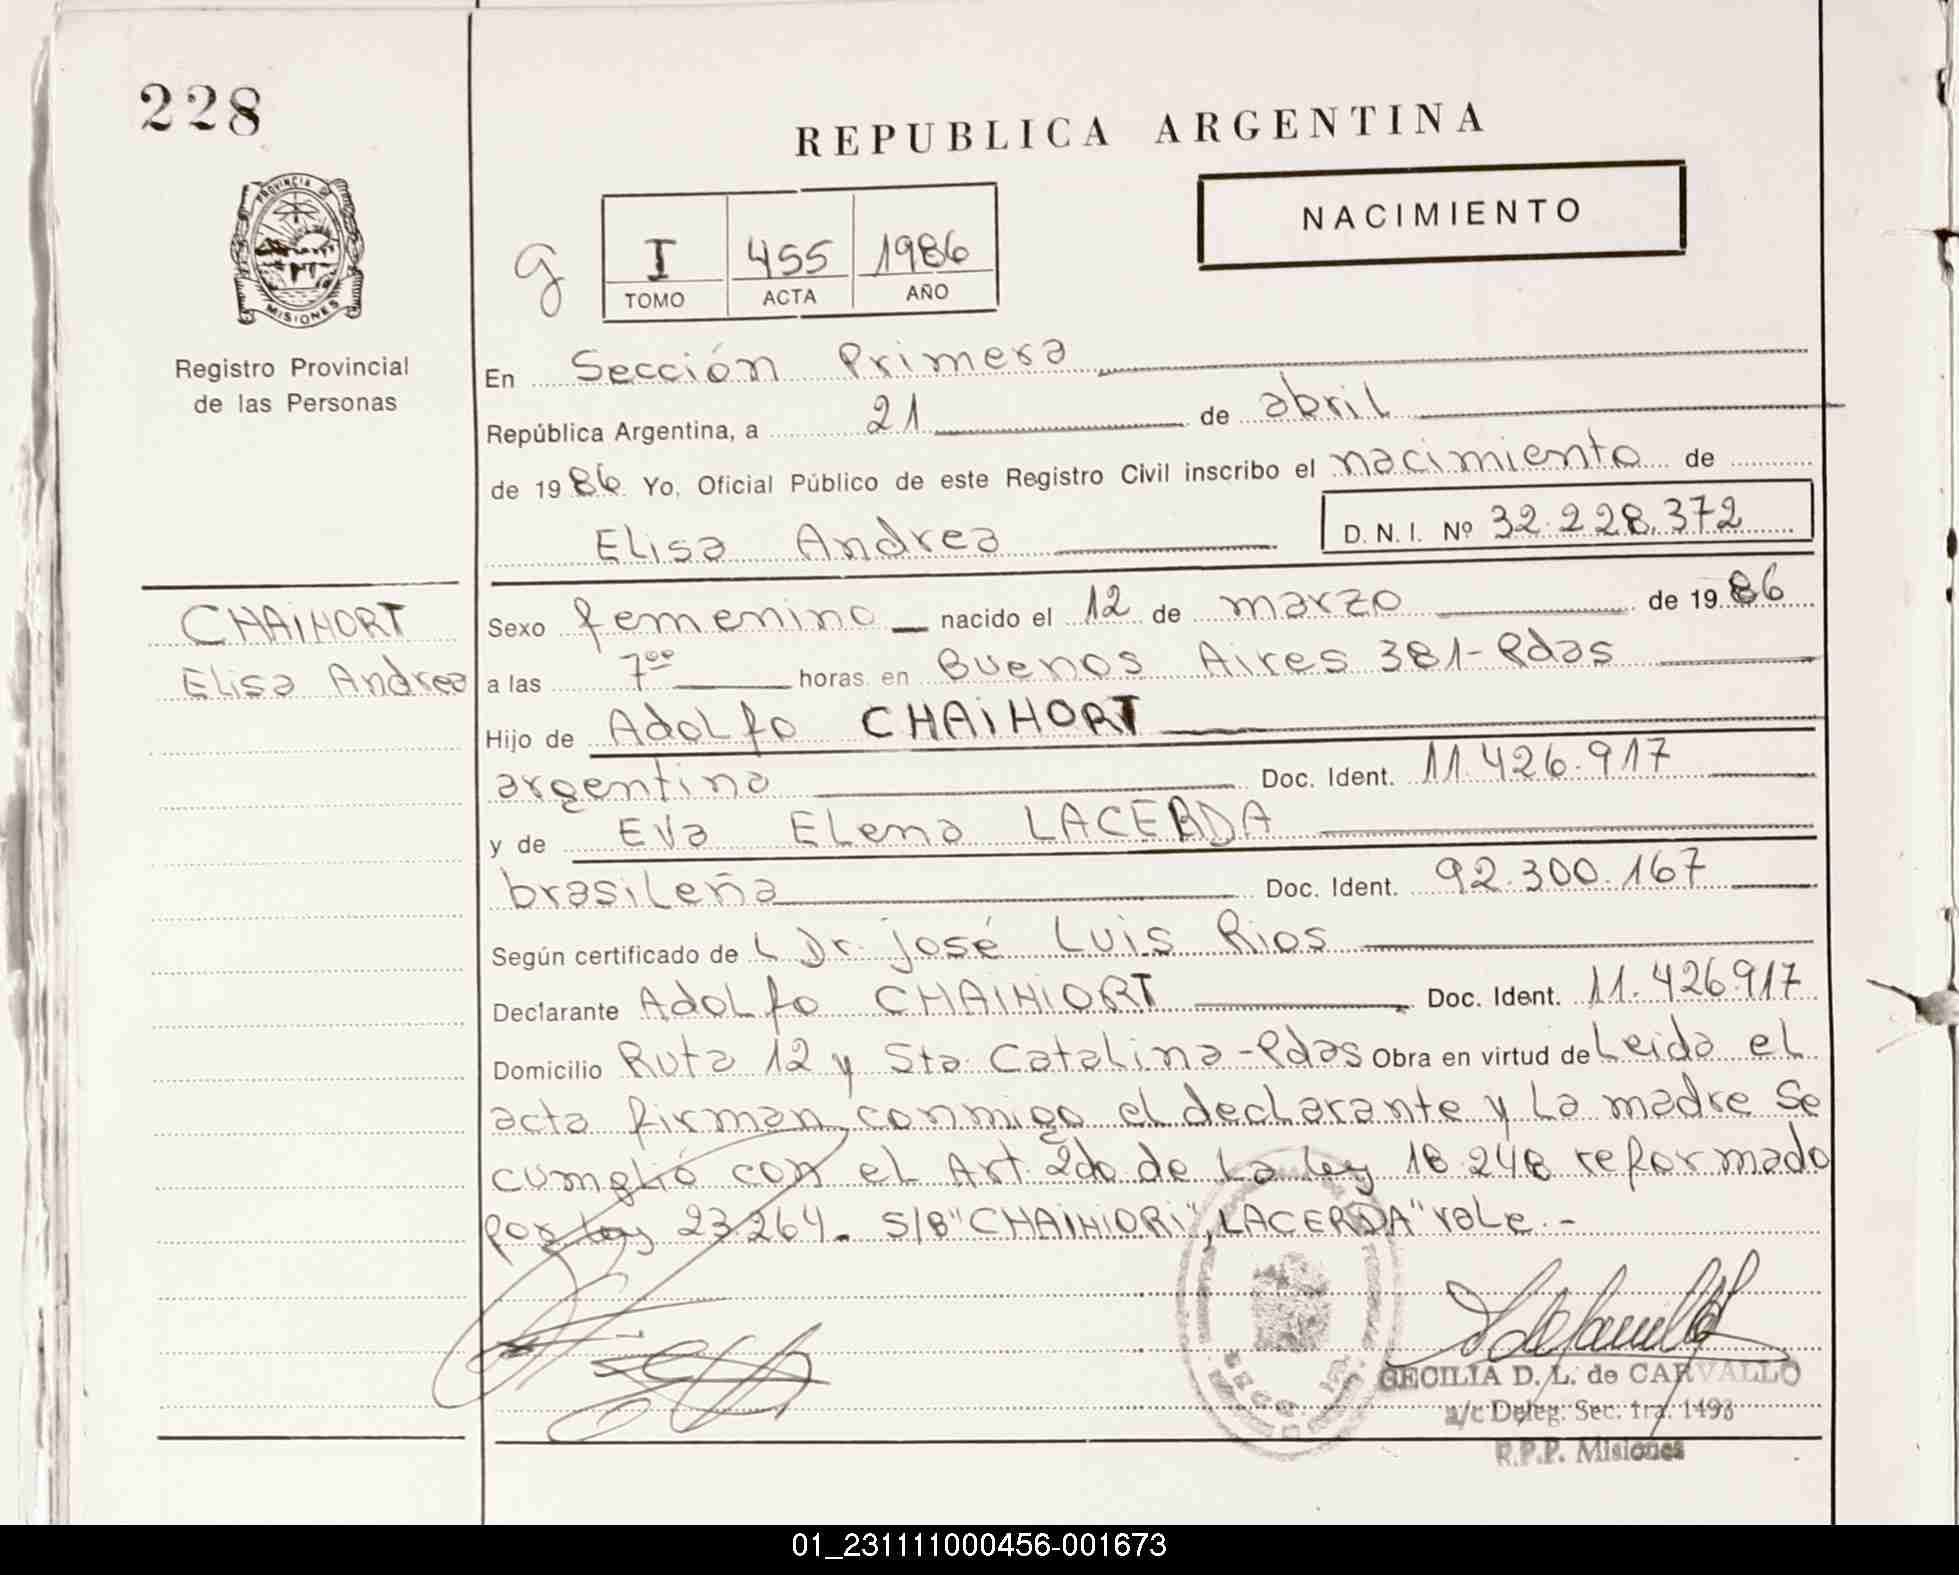 228
REPUBLICA ARGENTINA
NACIMIENTO
PROVINCIA DE
MISIONES
g
I 455 1986
TOMO ACTA AÑO
Registro Provincial
de las Personas
En Sección Primera
República Argentina, a 21 de abril
de 1986 Yo, Oficial Público de este Registro Civil inscribo el nacimiento de
Elisa Andrea D. N. I. Nº 32.228.372
CHAIHORT
Elisa Andrea
Sexo femenino nacido el 12 de marzo de 1986
a las 7⁰⁰ horas en Buenos Aires 381-Pdas
Hijo de Adolfo CHAIHORT
argentino Doc. Ident. 11.426.917
y de Eva Elena LACERDA
brasileña Doc. Ident. 92.300.167
Según certificado de L Dr. José Luis Rios
Declarante Adolfo CHAIHIORT Doc. Ident. 11.426.917
Domicilio Ruta 12 y Sta. Catalina-Pdas Obra en virtud de Leida el
acta firman conmigo el declarante y la madre Se
cumplió con el Art. 2do de la ley 18.248 reformado
por ley 23.264. S/B "CHAIHIORT", LACERDA" vale.-
CECILIA D. L. de CARVALLO
a/c Deleg. Sec. 1ra. 1493
R.P.P. Misiones
01_231111000456-001673